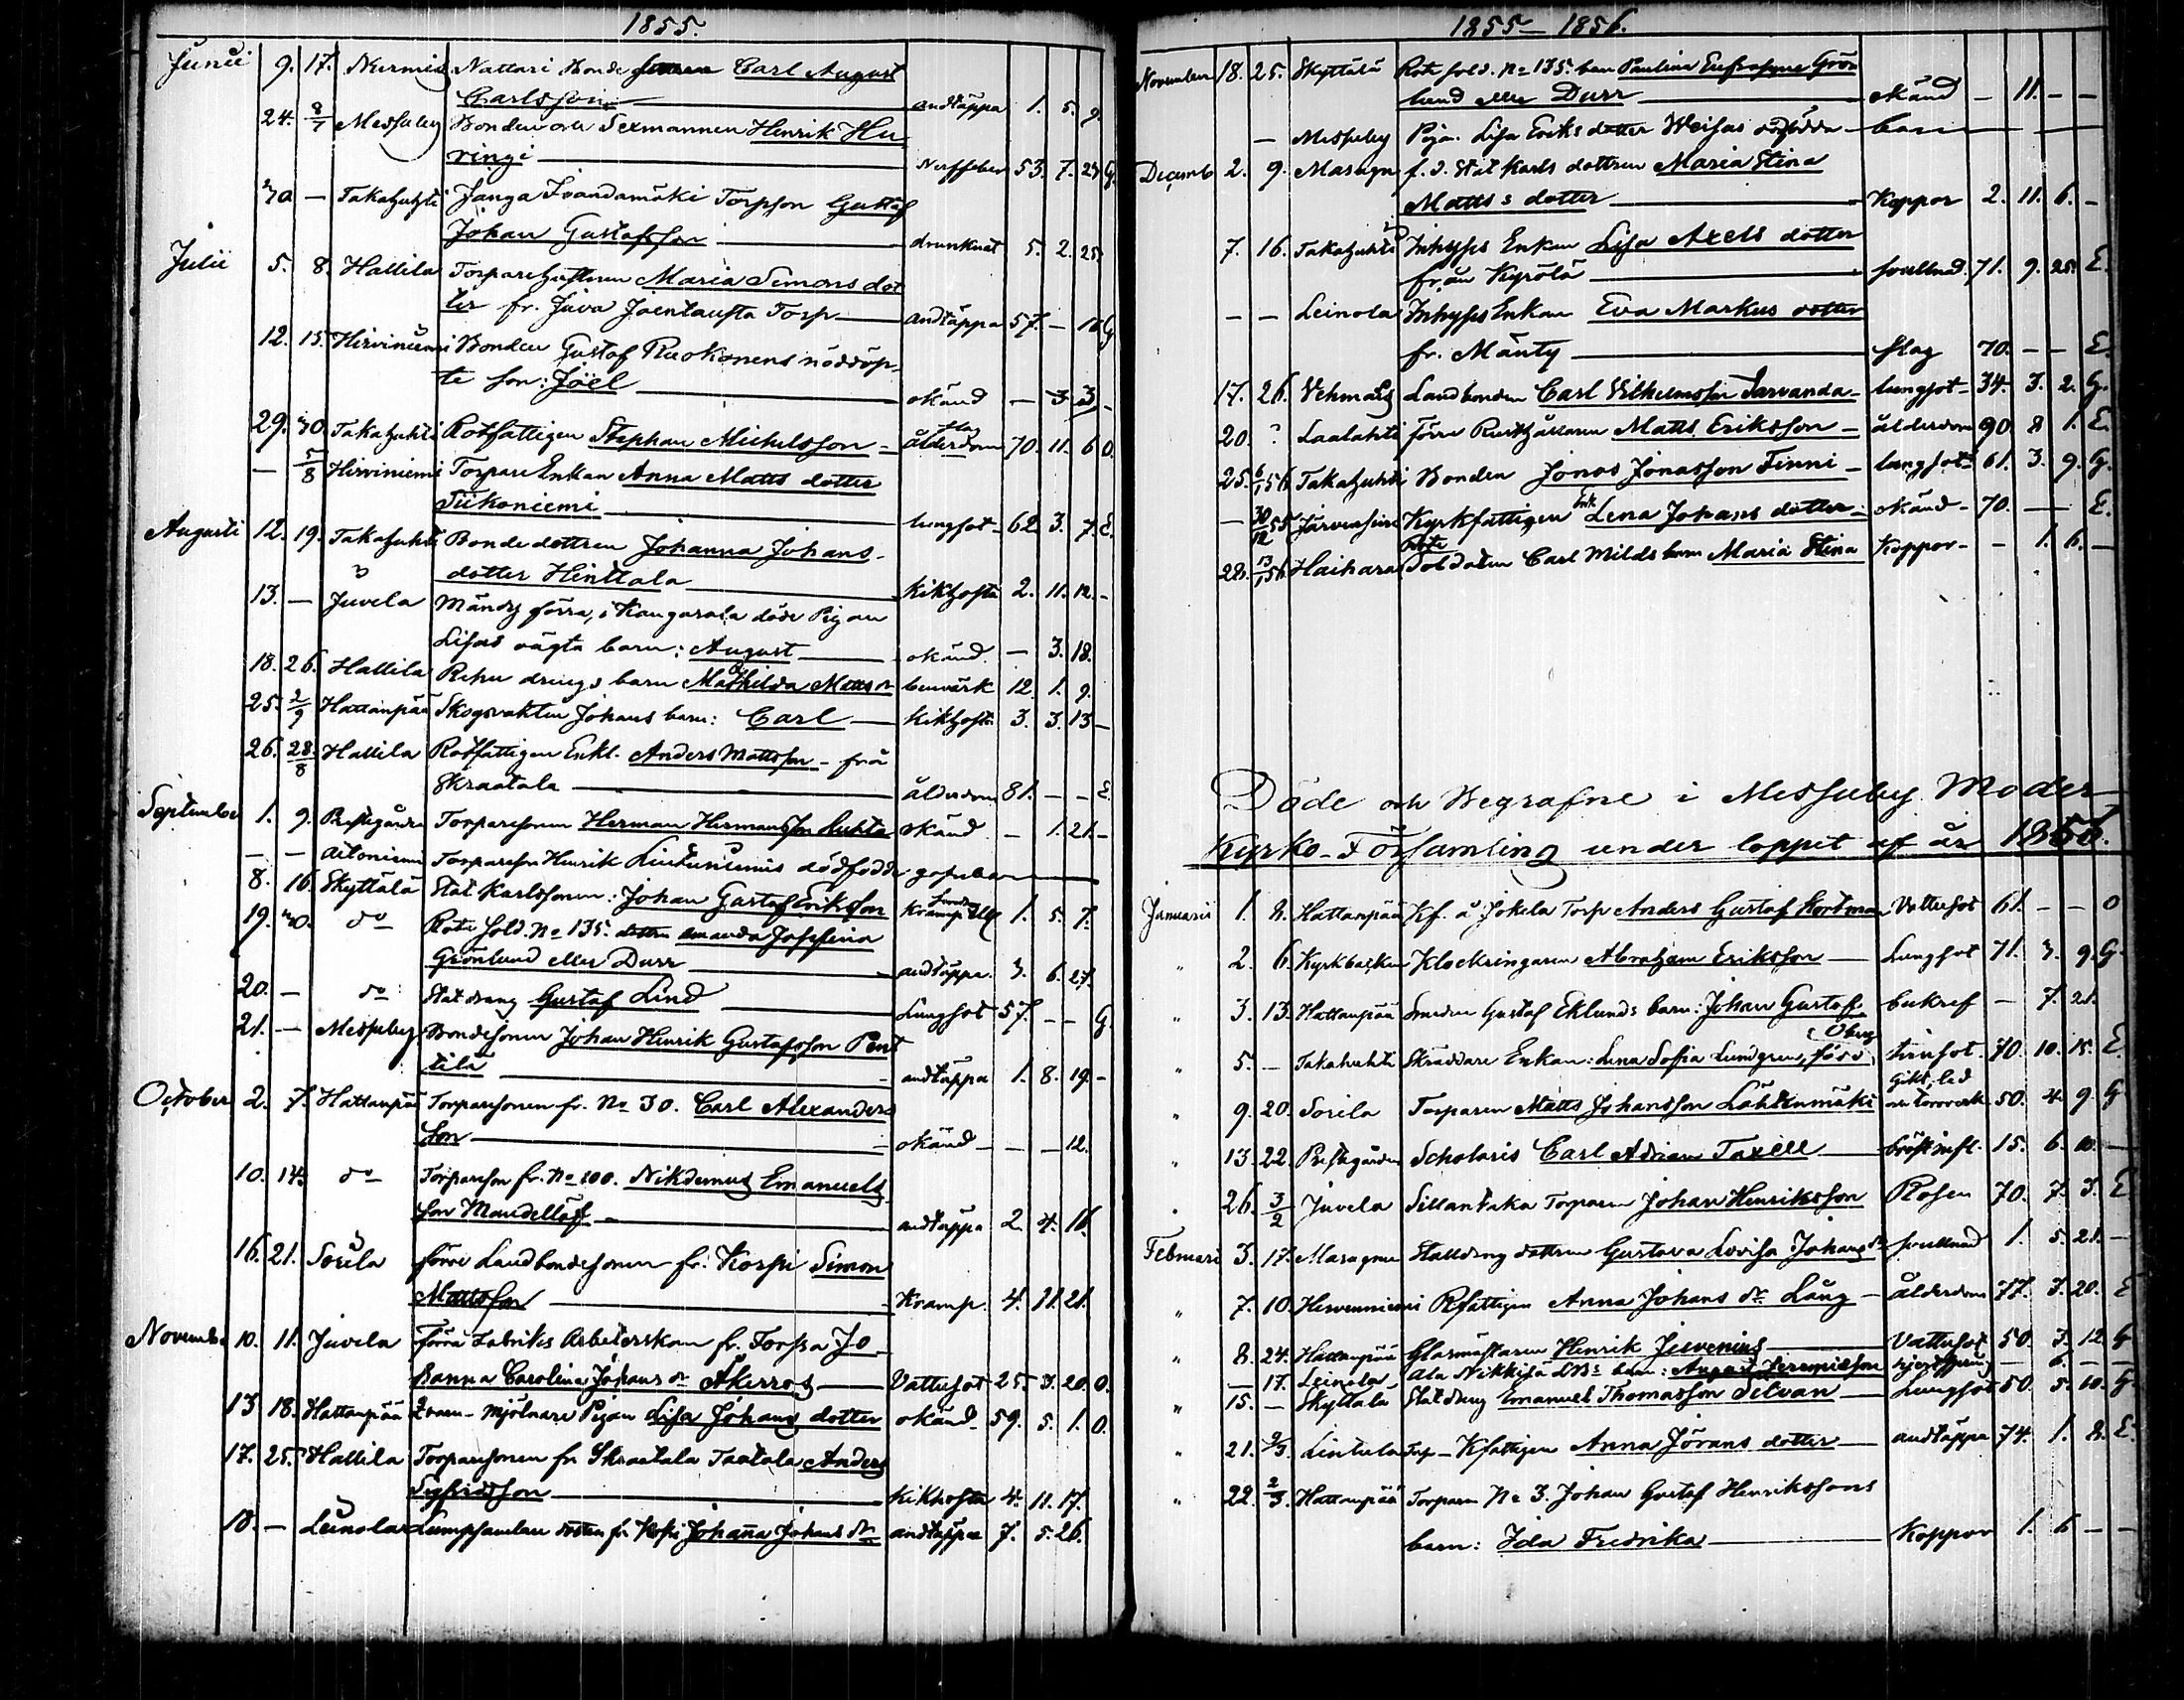 1855.
Junii 9. 17. Nurmis Nattari Bonde sonen Carl August
Carlsson andtäppa 1. 5. 9.
24. 8/7 Messuby Bonden och Sexmannen Henrik Hu
ringi Nerffeber 53. 7. 24 G.
30 — Takahuhti Janga Torpson Gustaf
Johan Gustafsson drunknat 5. 2. 25.
Julii 5. 8. Hallila Torpare hustrun Maria Simons dot
ter fr. Juva Joentausta Torp andtäppa 57. — 18 G
12. 15. Hirviniemi Bonden Gustaf Ruokonens nöddöp
te son: Joël okänd — 3 3 -
29. 30. Takahuhti Rotfattigen Stephan Michelsson slag ålderdom 70. 11. 6 O.
— 5/8 Hirviniemi Torpare Enkan Anna Matts dotter
Siikoniemi lungsot 62 3. 7. E.
Augusti 12. 19. Takahuhti Bonde dottren Johanna Johans
dotter Hinttala Kikhosta 2. 11. 12. -
13. — Juvela Mändz förra, i Kangasala döde Pigan
Lisas oägta barn: August okänd. — 3. 18.
18. 26. Hallila Repu drengs barn Mathilda Matts dr benvärk 12. 1. 9.
25. 2/9 Hattanpää Skogsvakten Johans barn: Carl Kikhosta 3. 3. 13 —
26. 28/8 Hallila Rotfattigen Enkl. Anders Mattsson - frå
Skraatala ålderdom 81. — — E.
September 1. 9. Prestgården Torparesonen Herman Hermansson Luhta okänd — 1. 21. -
— — Aitoniemi Torpareson Henrik Liutuniemis dödfödde gossebarn
8. 16. Skyttälä Stat Karlssonen: Johan Gustaf Eriksson Kramp 1. 5. 7.
19. 30. do Rote sold. No 135. dottren Amanda Josephina
Grönlund eller Durr andtäppa. 3. 6. 27.
20. — do Statdräng Gustaf Lind Lungsot 57. — — G.
21. — Messuby Bondesonen Johan Henrik Gustafsson Pent
tilä andtäppa 1. 8. 19. -
October 2. 7. Hattanpää Torparesonen fr. No 30. Carl Alexanders
son okänd — — — 12.
10. 14. do Torpareson fr. No 100. Nikdemus Emanuels
son Mandellöf andtäppa 2. 4. 16.
16. 21. Sorila förre Landbondesonen fr. Korpi Simon
Mattsson Kramp. 4. 11. 21.
November 10. 11. Juvela förra Fabriks Arbeterskan fr. Forssa Jo
hanna Carolina Johans dr Åkerros Vattusot 25. 3. 20. O.
13 18. Hattanpää Qvarn-Mjölnare Pigan Lisa Johans dotter okänd 59. 5. 1. O.
17. 25. Hallila Torparesonen fr Skraatala Taatala Anders
Sigfridsson Kikhosta 4. 11. 17.
18. — Leinola Lumpsamlan dotten fr. Johanna Johans dr andtäppa 7. 5. 26.
1855 — 1856.
November 18. 25. Skyttälä Rote sold. No 135. barn Paulina Eufrosyne Grön
lund eller Durr okänd — 11. — —
— Messuby Piga. Lisa Eriks dotter Weisas dödfödda barn
Decemb 2. 9. Masugn f. d. Stat Karls dottren Maria Stina
Matts dotter Koppor 2. 11. 6. -
7. 16. Takahuhti Inhyses Enkan Lisa Axels dotter
från Kyrölä svullnad. 71. 9. 25. E.
— — Leinola Inhyses Enkan Eva Markus dotter
fr. Mänty slag 70. — — E.
17. 26. Vehmais Landbonden Carl Vilhelmsson Tarvanda lungsot 34. 3. 2. G.
20. ? Laalahti förre Rusthållaren Matts Eriksson ålderdom 90 8 1. E.
25. 6/1 56 Takahuhti Bonden Jonas Jonasson Finni lungsot 61. 3. 9. G.
— 30/12 55 Järvensivu Kyrkfattigen Enk. Lena Johans dotter okänd 70. — — E.
28. 13/1 56 Haihara Rote Soldaten Carl Milds barn Maria Stina Koppor — 1. 6. —
Döde och Begrafne i Messuby Moder
Kyrko-Församling under loppet af år 1856.
Januarii 1. 8. Hattanpää Kf. å Jokela Torp Anders Gustaf Kortman Vattusot 61. — — O
" 2. 6. Kyrkbacken Klockringaren Abraham Eriksson Lungsot 71. 3. 9. G.
" 3. 13. Hattanpää Smeden Gustaf Eklunds barn: Johan Gustaf bukref — 7. 21.
" 5. — Takahuhti Skräddare Enkan: Lena Sofia Lundgren, född Öberg tvinsot 70. 10. 15. E.
" 9. 20. Sorila Torparen Matts Johansson Lähdenmäki Gikt, led och torrverk 50. 4. 9. G
" 13. 22. Prestgården Scholaris Carl Adrian Taxell bröstinfl. 15. 6. 10. —
" 26. 3/2 Juvela Sillantaka Torparen Johan Henriksson Rosen 70. 7. 3. E
Februari 3. 17. Masugnen Statdreng dottren Gustava Lovisa Johans dr svullnad 1. 5. 21. —
" 7. 10. Hirvenniemi Rfattigen Anna Johans dr Lång ålderdom 77. 3. 20. E
" 8. 24. Hattanpää Glasmästaren Henrik Juvenius Vattusot 50. 3. 12. G
— 17. Leinola Ala Nikkilä LBs barn: August Jeremiasson — 6. — —
" 15. — Skyttälä Statdreng Emanuel Thomasson Selvan Lungsot 50. 5. 10. G.
" 21. 2/3. Lintula Torp Kfattigen Anna Jörans dotter andtäppa 74. 1. 8. E.
" 22. 2/3. Hattanpää Torparen No 3. Johan Gustaf Henrikssons
barn: Ida Fredrika Koppor 1. 6 — —